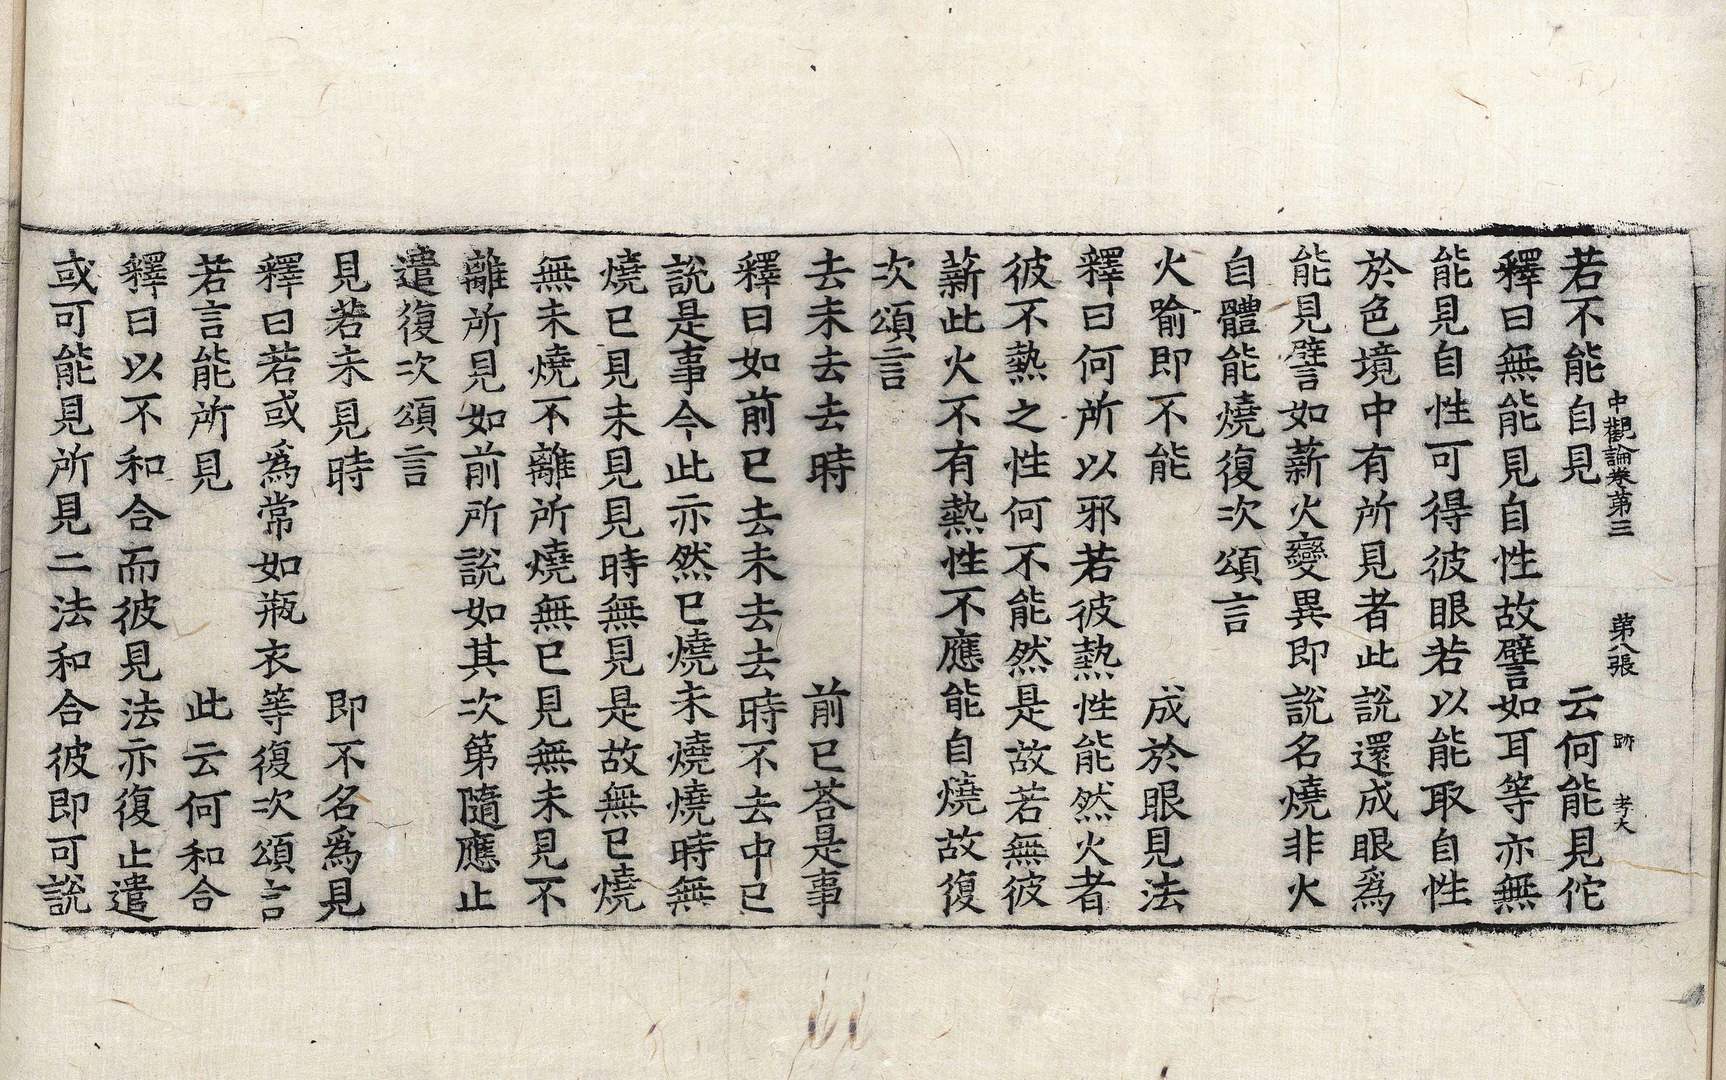 中觀論卷第三　第八張　跡　孝大
若不能自見　云何能見佗
釋曰無能見自性故譬如耳等亦無
能見自性可得彼眼若以能取自性
於色境中有所見者此說還成眼爲
能見譬如薪火變異即說名燒非火
自體能燒復次頌言
火喻即不能　成於眼見法
釋曰何所以邪若彼熱性能然火者
彼不熱之性何不能然是故若無彼
薪此火不有熱性不應能自燒故復
次頌言
去未去去時　前已荅是事
釋曰如前已去未去去時不去中已
說是事今此亦然已燒未燒燒時無
燒已見未見見時無見是故無已燒
無未燒不離所燒無已見無未見不
離所見如前所說如其次第隨應止
遣復次頌言
見若未見時　即不名爲見
釋曰若或爲常如瓶衣等復次頌言
若言能所見　此云何和合
釋曰以不和合而彼見法亦復止遣
或可能見所見二法和合彼即可說